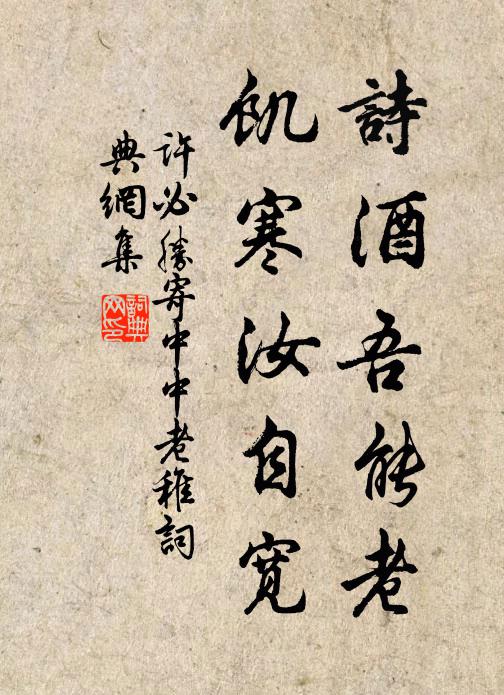 詩酒吾能老
飢寒汝自寬
許必勝寄中中老稚詞
典網集
詞典
网印